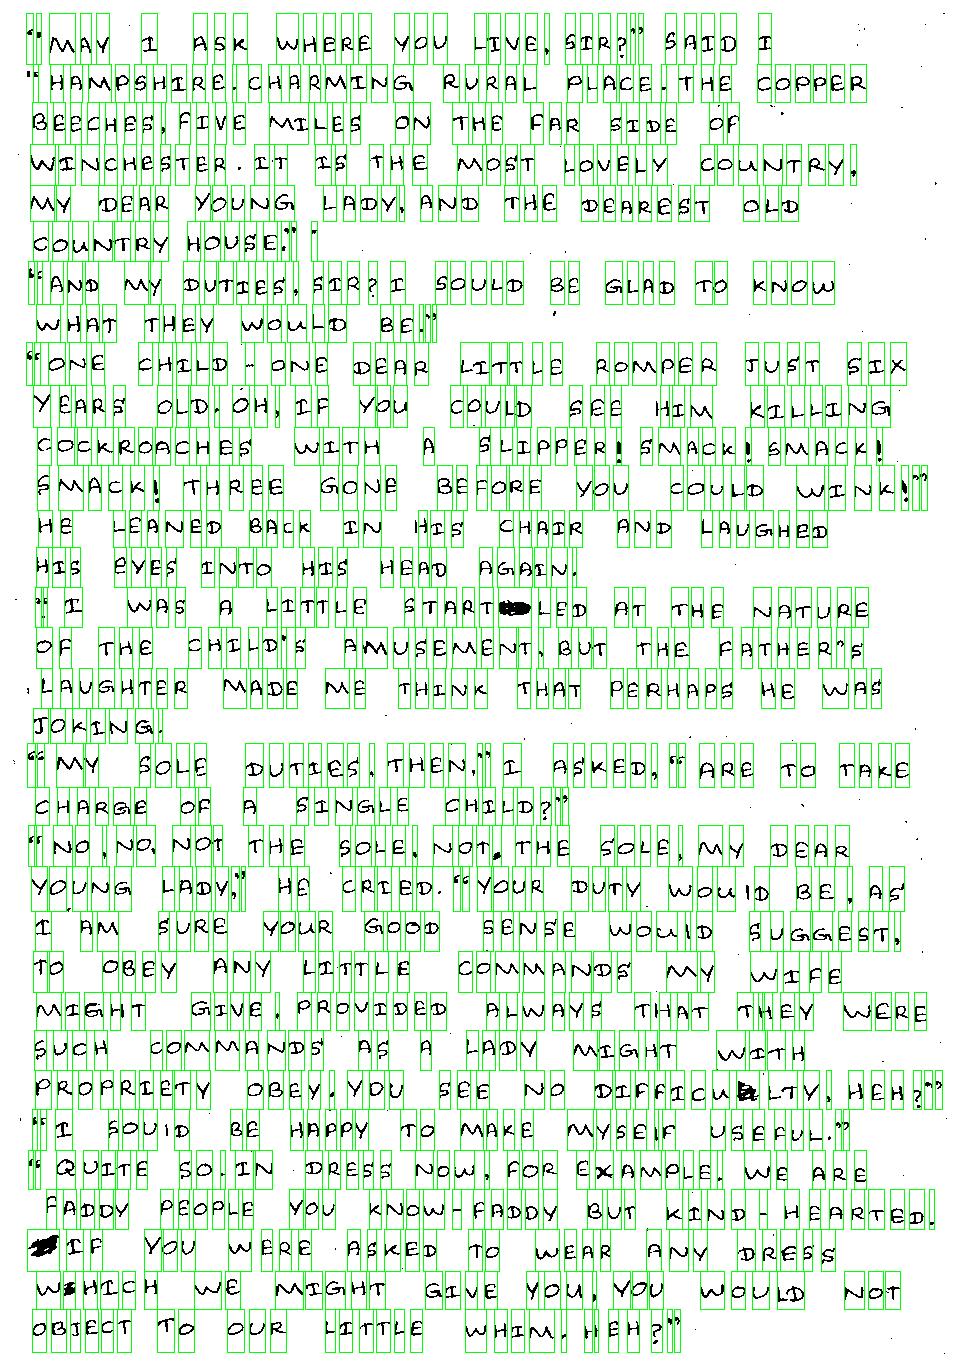 “MAY I ASK WHERE YOU LIVE, SIR?” SAID I
“HAMPSHIRE. CHARMING RURAL PLACE. THE COPPER
BEECHES, FIVE MILES ON THE FAR SIDE OF
WINCHESTER. IT IS THE MOST LOVELY COUNTRY,
MY DEAR YOUNG LADY, AND THE DEAREST OLD
COUNTRY HOUSE.”
“AND MY DUTIES, SIR? I SOULD BE GLAD TO KNOW
WHAT THEY WOULD BE.”
“ONE CHILD - ONE DEAR LITTLE ROMPER JUST SIX
YEARS OLD. OH, IF YOU COULD SEE HIM KILLING
COCKROACHES WITH A SLIPPER! SMACK! SMACK!
SMACK! THREE GONE BEFORE YOU COULD WINK!”
HE LEANED BACK IN HIS CHAIR AND LAUGHED
HIS EYES INTO HIS HEAD AGAIN.
“I WAS A LITTLE STARTLED AT THE NATURE
OF THE CHILD'S AMUSEMENT, BUT THE FATHER'S
LAUGHTER MADE ME THINK THAT PERHAPS HE WAS
JOKING.
“MY SOLE DUTIES, THEN,” I ASKED, “ARE TO TAKE
CHARGE OF A SINGLE CHILD?”
“NO, NO, NOT THE SOLE, NOT, THE SOLE, MY DEAR
YOUNG LADY,” HE CRIED. “YOUR DUTY WOULD BE, AS
I AM SURE YOUR GOOD SENSE WOULD SUGGEST,
TO OBEY ANY LITTLE COMMANDS MY WIFE
MIGHT GIVE, PROVIDED ALWAYS THAT THEY WERE
SUCH COMMANDS AS A LADY MIGHT WITH
PROPRIETY OBEY. YOU SEE NO DIFFICULTY, HEH?”
“I SOULD BE HAPPY TO MAKE MYSELF USEFUL.”
“QUITE SO. IN DRESS NOW, FOR EXAMPLE. WE ARE
FADDY PEOPLE YOU KNOW - FADDY BUT KIND - HEARTED.
IF YOU WERE ASKED TO WEAR ANY DRESS
WHICH WE MIGHT GIVE YOU, YOU WOULD NOT
OBJECT TO OUR LITTLE WHIM. HEH?”